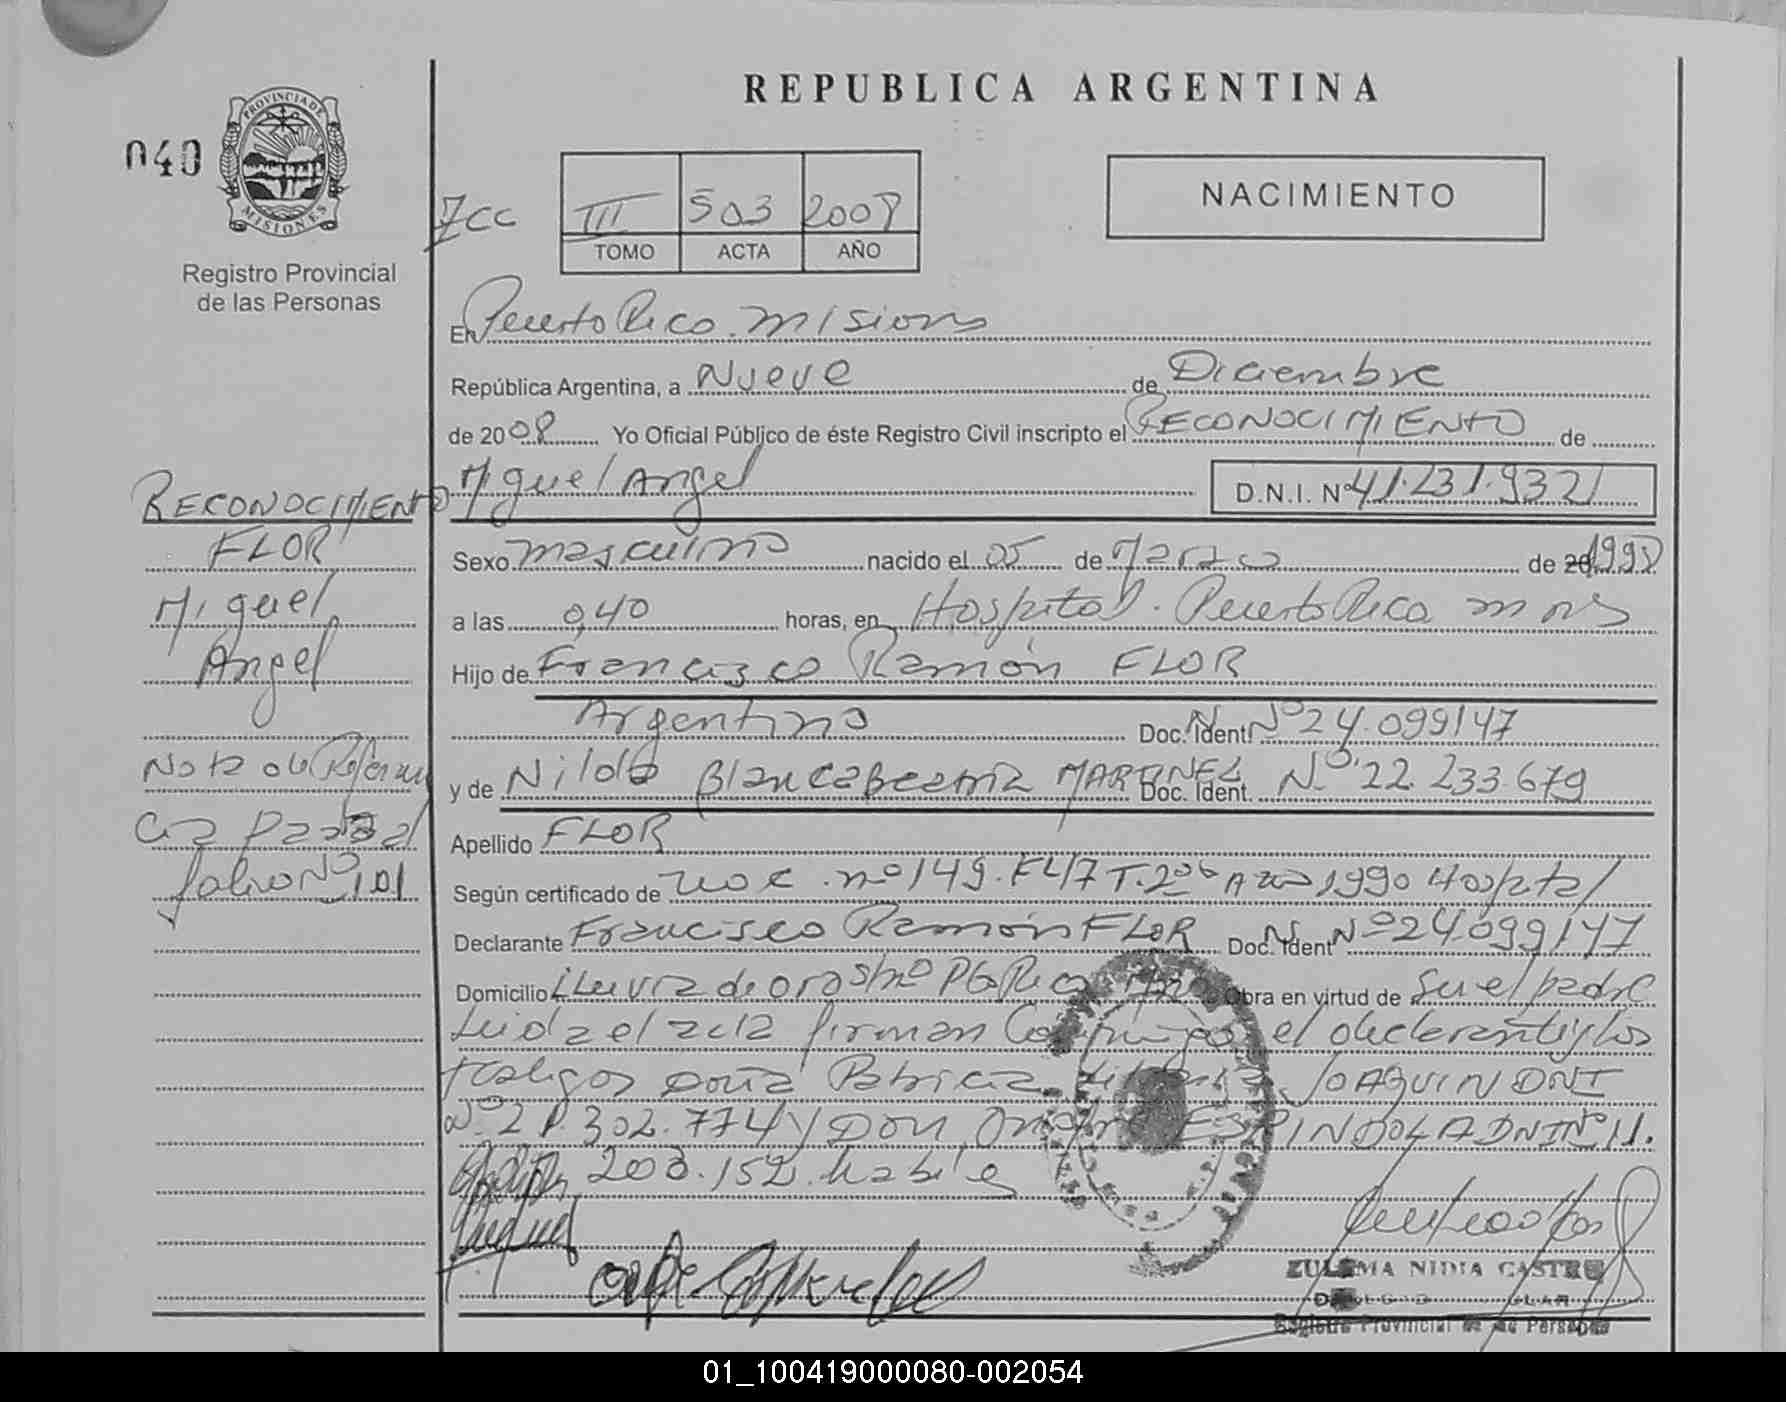 REPUBLICA ARGENTINA
040
PROVINCIA DE
MISIONES
Registro Provincial
de las Personas
III 503 2008
TOMO ACTA AÑO
NACIMIENTO
En Puerto Rico. Misiones
República Argentina, a Nueve de Diciembre
de 2008 Yo Oficial Público de éste Registro Civil inscripto el RECONOCIMIENTO de
Miguel Angel D.N.I. Nº 41.231.932
RECONOCIMIENTO
FLOR
Miguel
Angel
Nota de
101
Sexo masculino nacido el 05 de Marzo de 20 1998
a las 0,40 horas, en Hospital. Puerto Rico mnes
Hijo de Francisco Ramón FLOR
Argentino Doc. Ident. Nº 24.099147
y de Nilda Blanca Beatriz MARTINEZ Doc. Ident. Nº 22.233.679
Apellido FLOR
Según certificado de nº 149. Fº 17 T. 2º Año 1990 Hospital
Declarante Francisco Ramón FLOR Doc. Ident Nº 24.099147
Domicilio Lluvia de oro s/nº Pto Rico Obra en virtud de Ser el padre
Leida el acta firman Conmigo el declarante y los
testigos doña Patricia JOAQUIN DNI
302.774 y don ESPINDOLA DNI Nº 11.
203.152. habiles
ZULEMA NIDIA CASTRO
Registro Provincial de las Personas
01_100419000080-002054